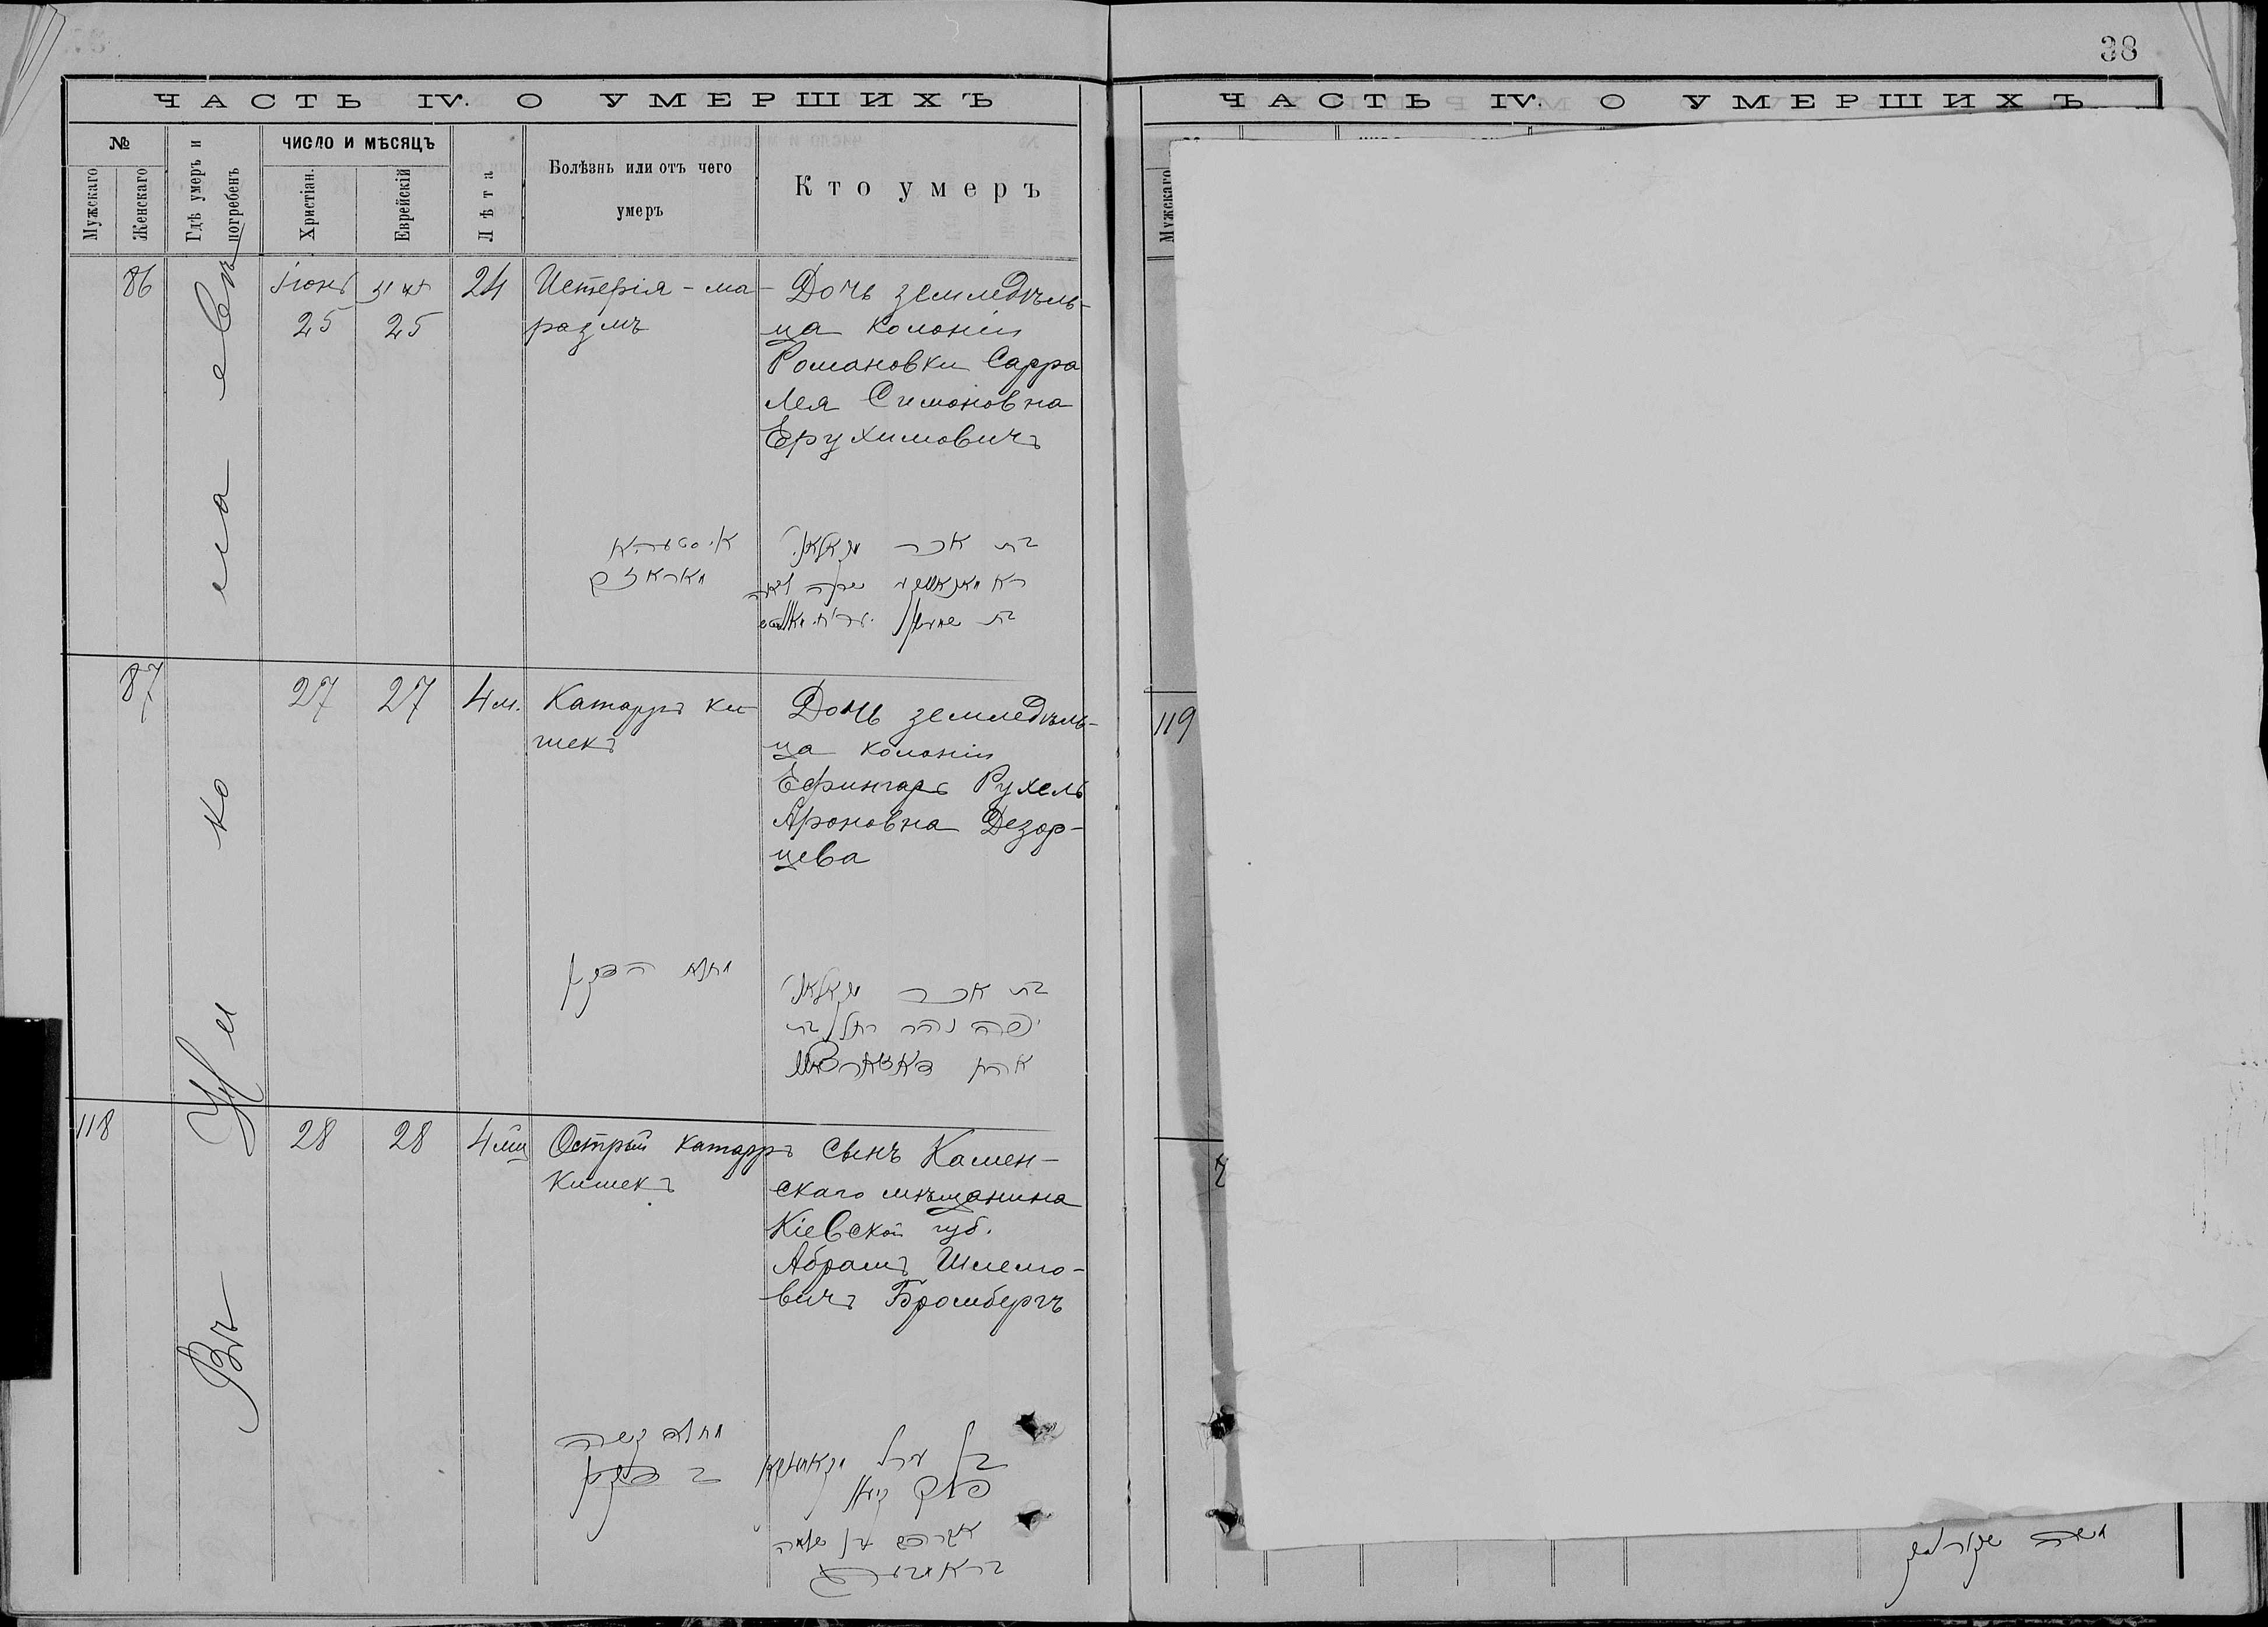 38
ЧАСТЬ IV. О УМЕРШИХЪ
№
Мужскаго
Женскаго
Гдѣ умеръ и погребенъ
ЧИСЛО И МѢСЯЦЪ
Христіан.
Еврейскій
Лѣта
Болѣзнь или отъ чего
умеръ
Кто умеръ
Въ Николаевѣ
86
Іюнь
25
25
24
Истерія-ма-
размъ
Дочь земледѣль-
ца колоніи
Романовки Сарра
Лея Симоновна
Ерухимовичъ
מאראזם
בת אכר
87
27
27
4 м.
Катарръ ки-
шекъ
Дочь земледѣль-
ца колоніи
Ефингаръ Рухель
Ароновна Дезор-
цева
בת אכר
יפה נהר רחל בת
אהרן
118
28
28
4 мц
Острый катарръ
кишекъ
Сынъ Камен-
скаго мѣщанина
Кіевской губ.
Абрамъ Шлемо-
вичъ Бромбергъ
אברהם בן שלמה
ЧАСТЬ IV. О УМЕРШИХЪ
Мужскаго
119